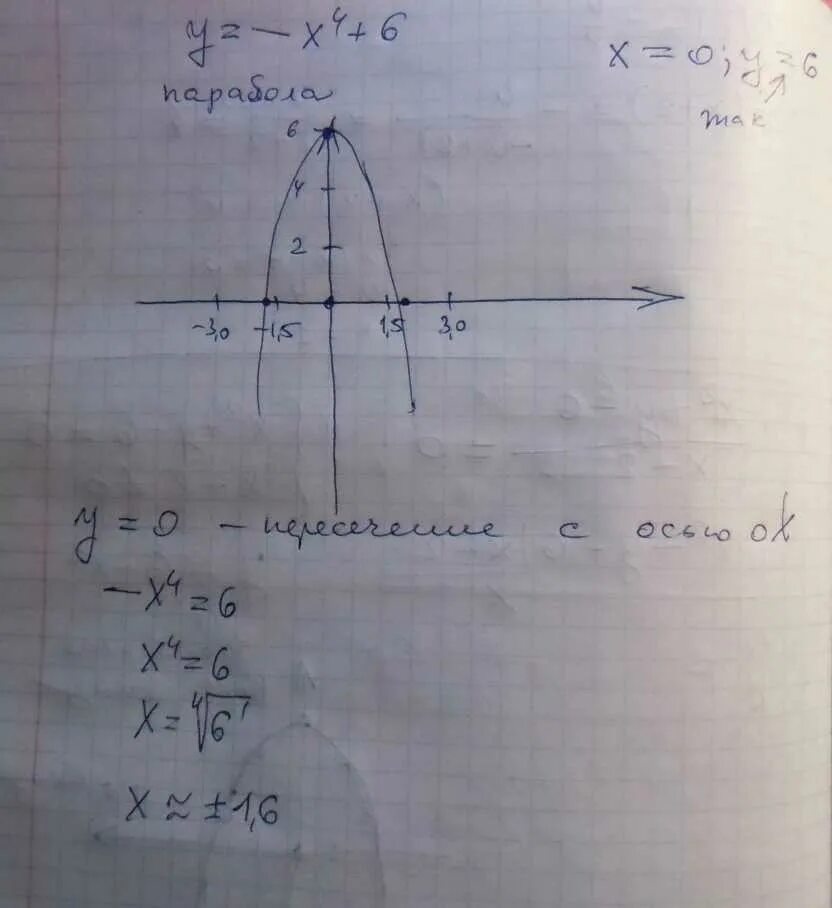 y = – x⁴ + 6
x = 0; y = 6
парабола
max
6
4
2
–3,0 –1,5 1,5 3,0
y = 0 – пересечение с осью oX
– x⁴ = 6
x⁴ = 6
x = ⁴√6
x ≈ ± 1,6